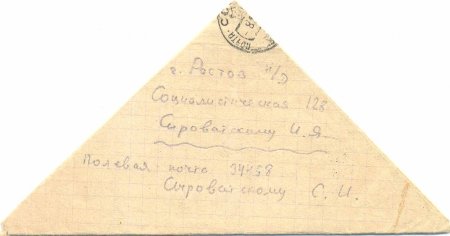 г. Ростов н/Д
Социалистическая 128
Сыроватскому И.Я.
Полевая почта 34458
Сыроватскому С. И.